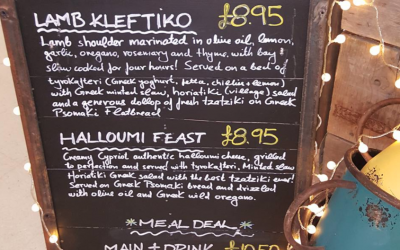 LAMB KLEFTIKO £8.95
Lamb shoulder marinated in olive oil, lemon,
garlic, oregano, rosemary and thyme, with bay &
slow cooked for four hours! Served on a bed of
tyrokafteri (Greek yoghurt, feta, chillis + lemon)
with Greek minted slaw, horiatiki (village) salad
and a generous dollop of fresh tzatziki on Greek
Psomaki Flatbread
HALLOUMI FEAST £8.95
Creamy Cypriot authentic halloumi cheese, grilled
to perfection and served with tyrokafteri, Minted slaw
Horiatiki Greek salad with the best tzatziki ever!
Served on Greek Psomaki bread and drizzled
with olive oil and Greek wild oregano.
MEAL DEAL
MAIN + DRINK £10.50